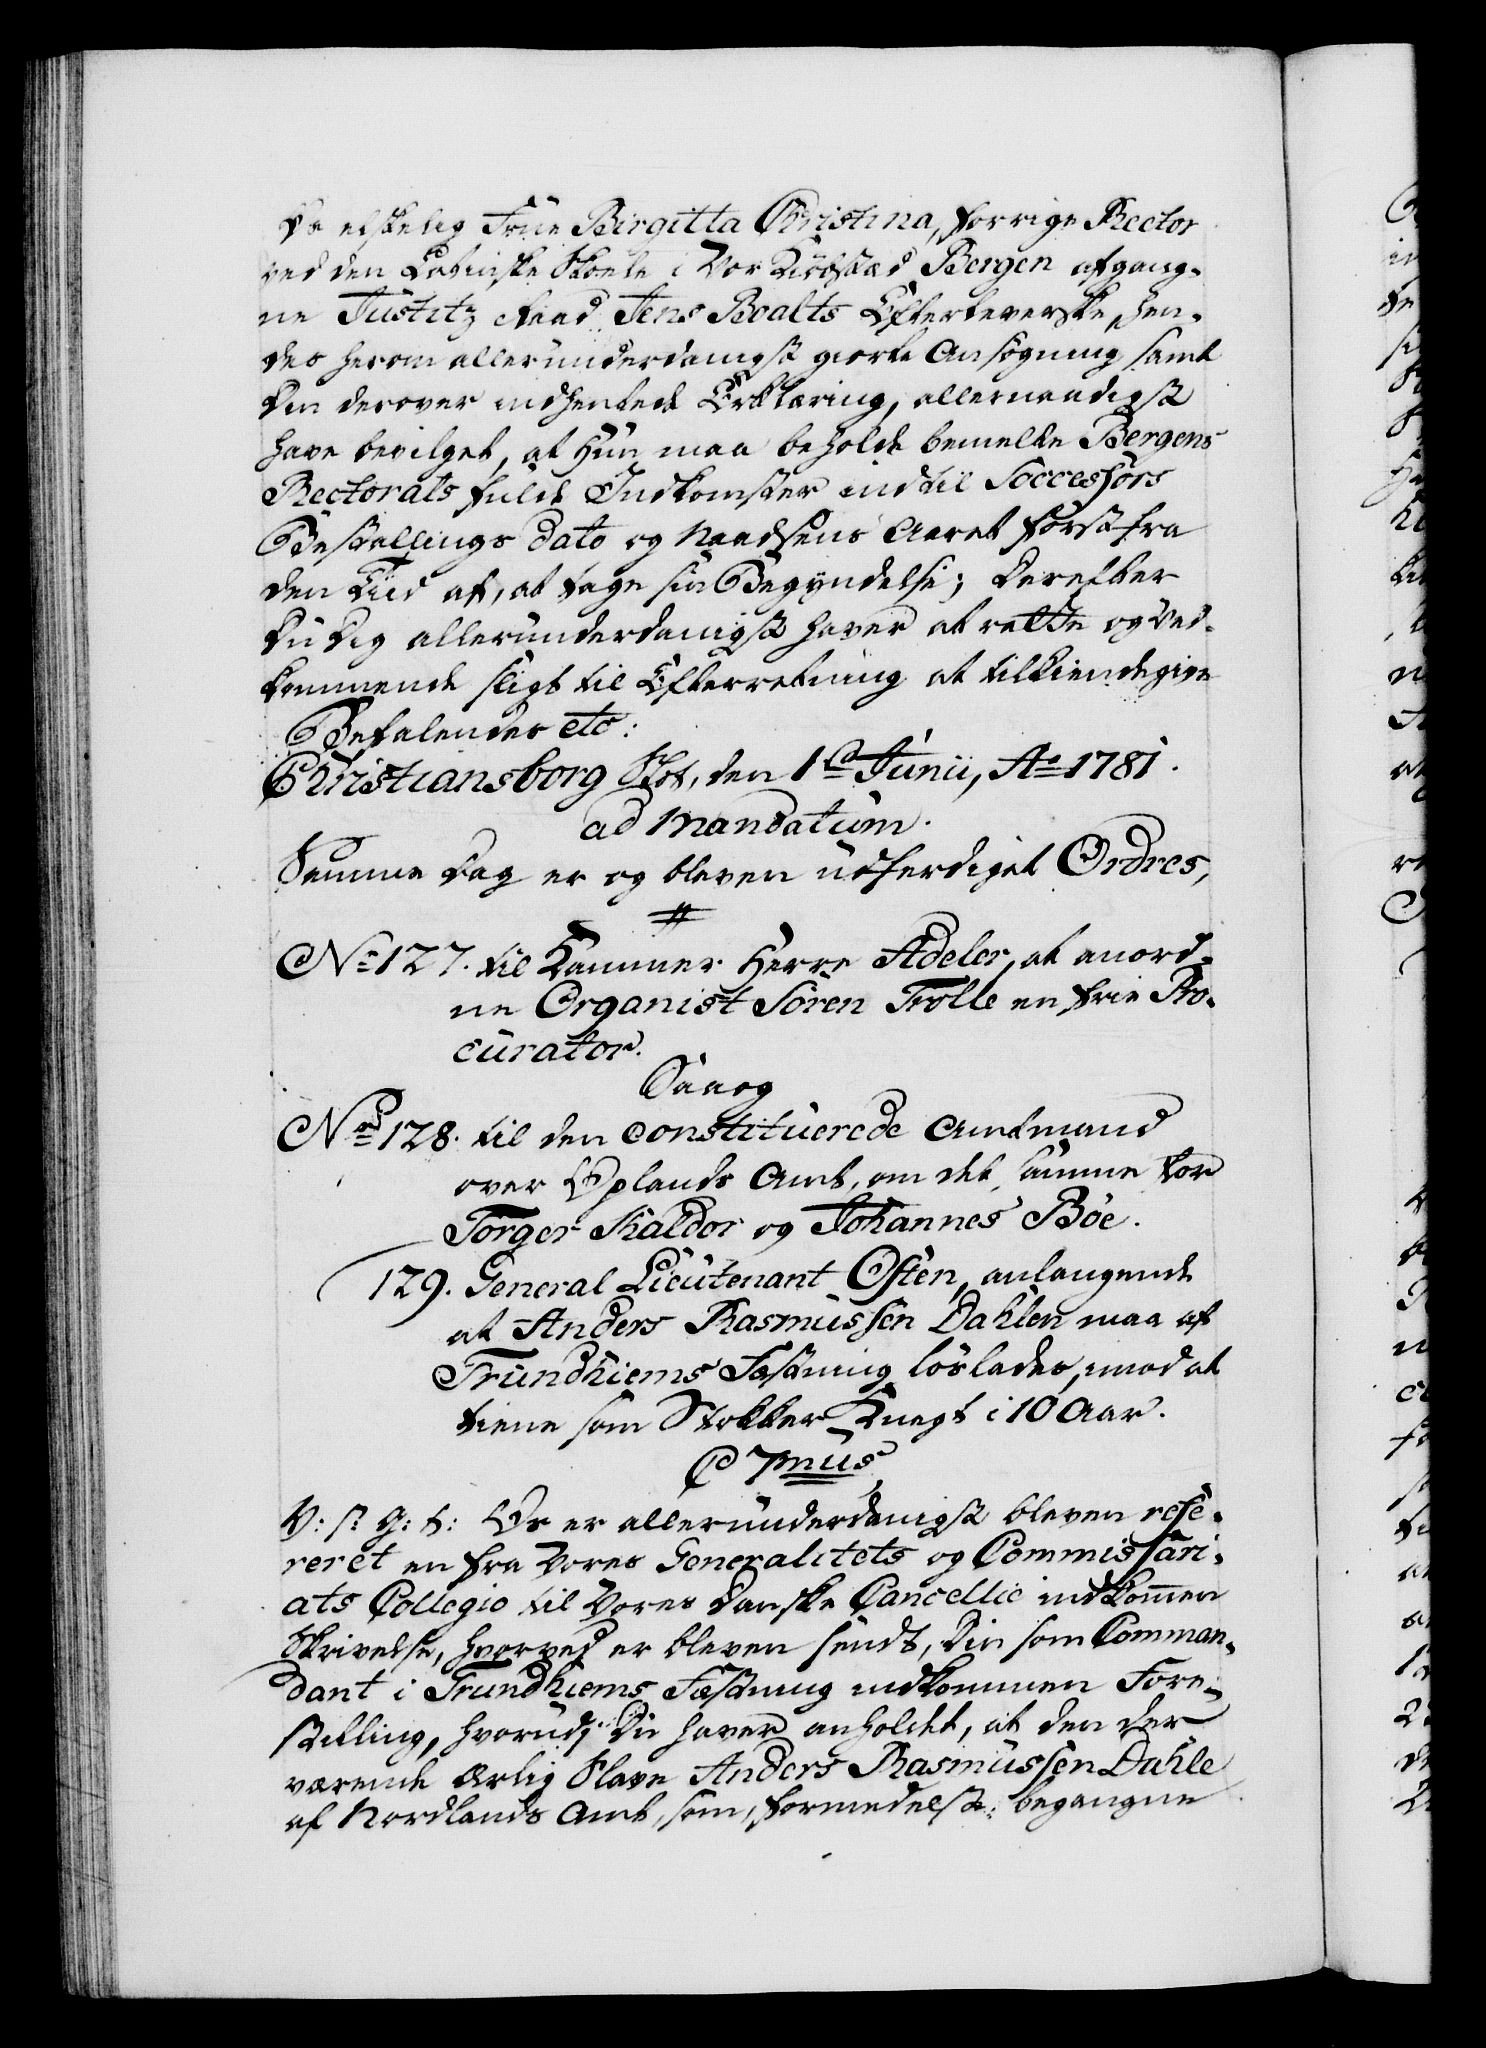 Os elskelig Frue Birgitta Christina, forrige Rector
ved den Latinske Skoele i Vor Kiøbstæd Bergen afgang-
ne Justitz Raad Jens Boalts Efterleverske, hen-
des herom allerunderdanigst giorte Ansøgning samt
den derover indhentede Erklæring, allernaadigst
have bevilget, at Hun maa beholde bemelte Bergens
Rectorats fulde Indkomster indtil Soccessors
Bestallings dato og Naadsens Aaret først fra
den Tiid af, at tage sin Begyndelse; derefter
Du Dig allerunderdanigst haver at rette og Ved-
kommende sligt til Efterretning at tilkiendegive
Befalendes etc:
Christiansborg Slot, den 1te Junii, Ao 1781.
ad Mandatum.
Samme Dag er og bleven udferdiget Ordres,
#
No 127. til Kammer Herre Adeler, at anord-
ne Organist Søren Trolle en frie Pro-
curator.
Saa og
No 128. til den constituerede Amtmand
over Oplands Amt, om det samme for
Torger Skaldor og Johannes Bøe.
129. General Lieutenant Osten, anlangende
at Anders Rasmussen Dahlen maa af
Trundhiems Fæstning løslades, mod at
tiene som Stokker Knegt i 10 Aar.
C 7mus
V: s: G: t: Os er allerunderdanigst bleven refe-
reret en fra Vores Generalitets og Commissari-
ats Collegio til Vores Danske Cancellie indkommen
Skrivelse, hvorved er bleven sendt, Din som Comman-
dant i Trundhiems Fæstning indkommen Fore-
stilling, hvorudj Du haver anholdt, at den der
værende Ærlig Slave Anders Rasmussen Dahle
af Nordlands Amt, som, formedelst begangne